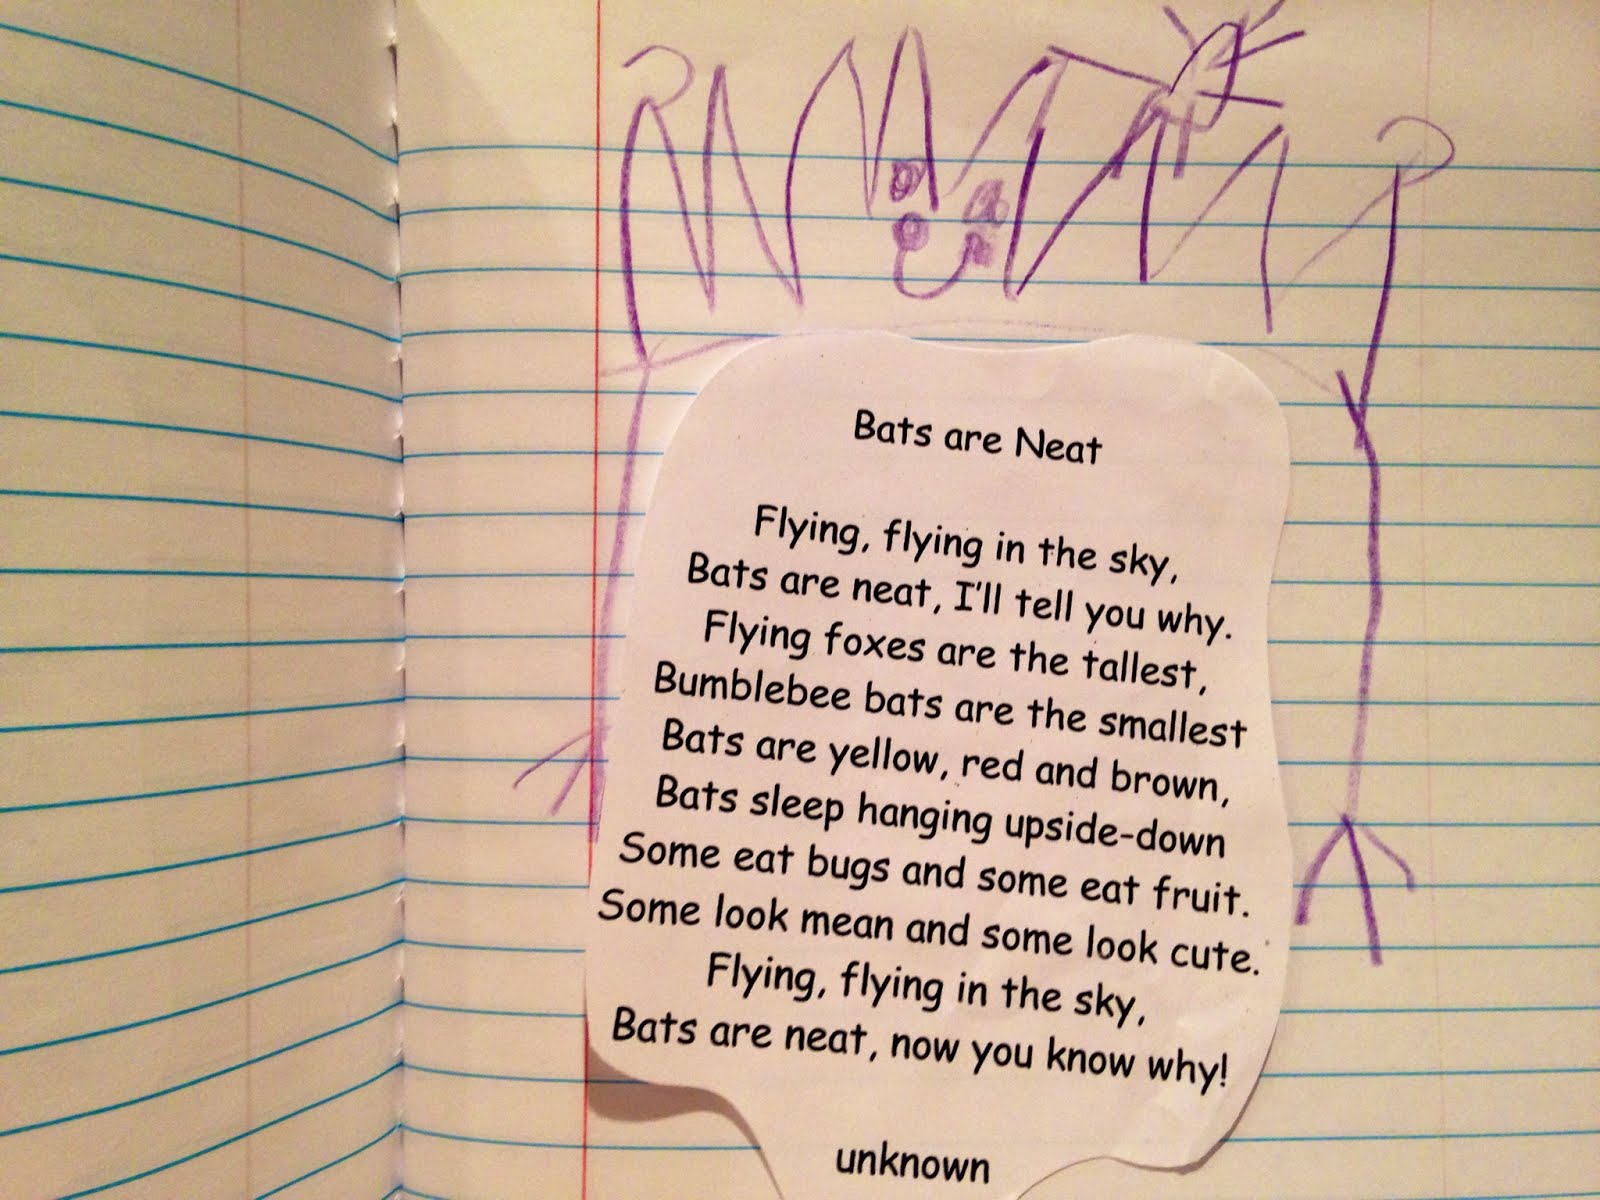 Bats are Neat
Flying, flying in the sky,
Bats are neat, I'll tell you why.
Flying foxes are the tallest,
Bumblebee bats are the smallest
Bats are yellow, red and brown,
Bats sleep hanging upside-down
Some eat bugs and some eat fruit.
Some look mean and some look cute.
Flying, flying in the sky,
Bats are neat, now you know why!
unknown